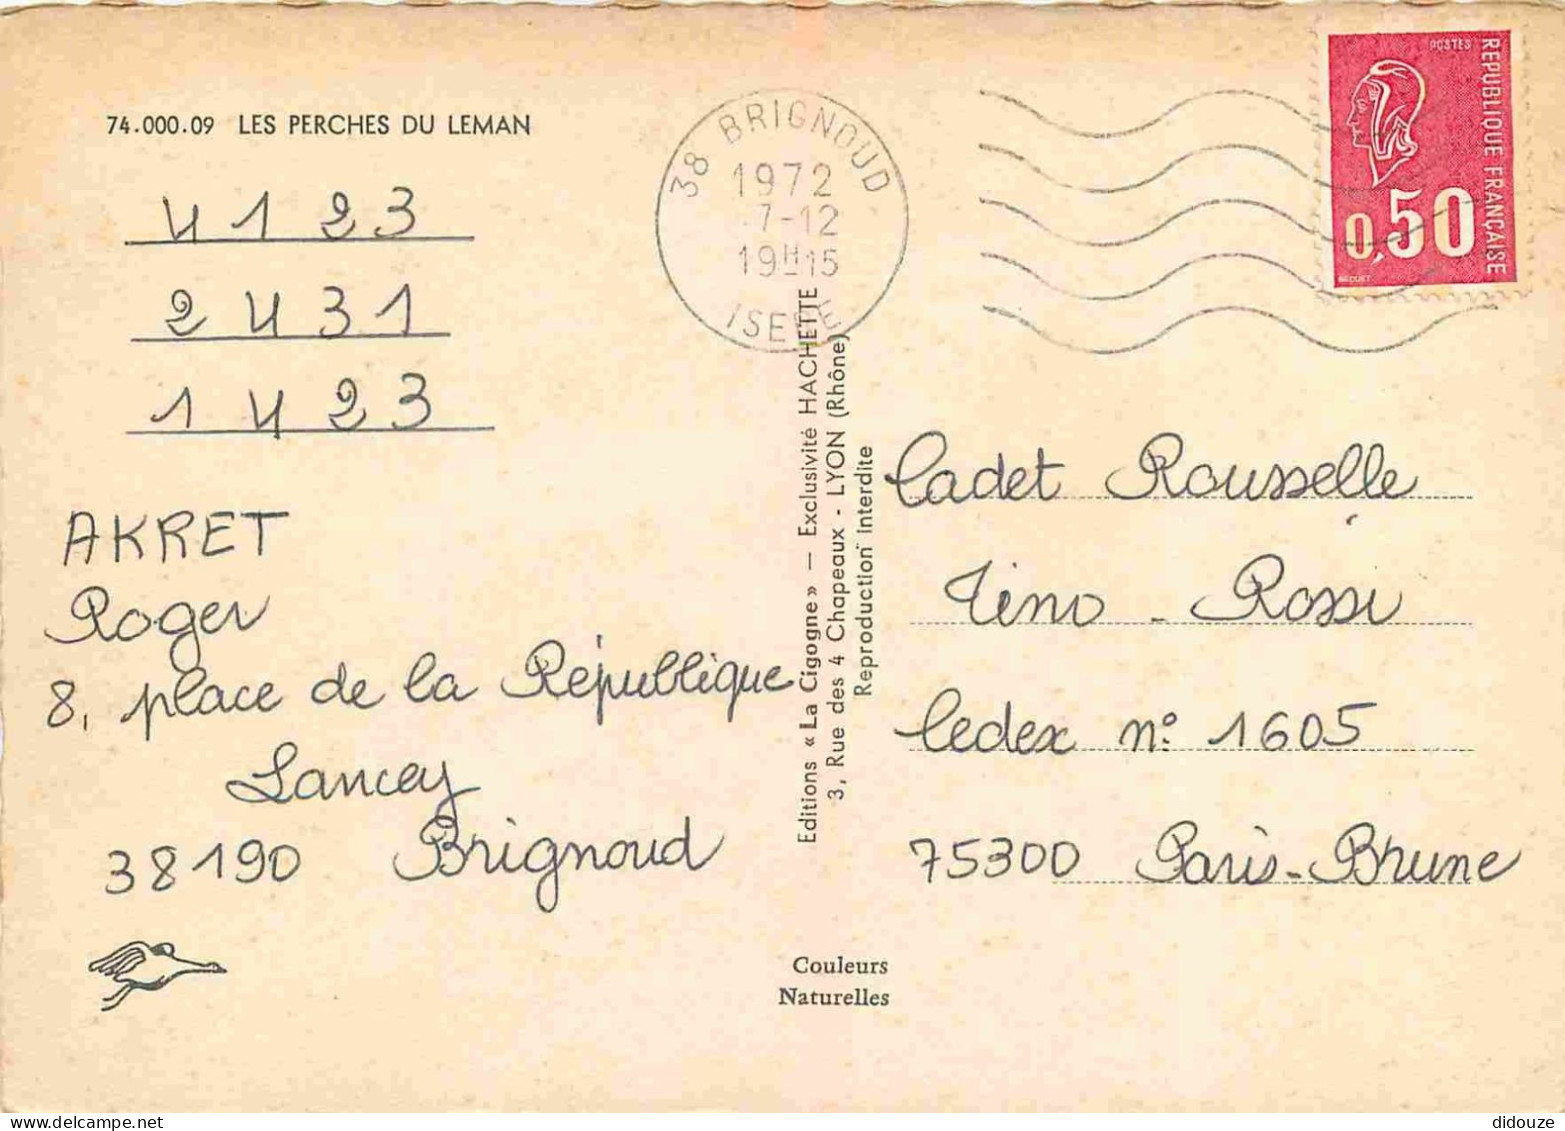 74.000.09 LES PERCHES DU LEMAN
4 1 2 3
2 4 3 1
1 4 2 3
AKRET
Roger
8, place de la République
Lancey
38190 Brignoud
38 BRIGNOUD
1972
7-12
19H15
ISERE
Editions « La Cigogne » — Exclusivité HACHETTE
3, Rue des 4 Chapeaux - LYON (Rhône)
Reproduction Interdite
Couleurs
Naturelles
POSTES
REPUBLIQUE FRANÇAISE
0,50
BEQUET
Cadet Rousselle
Tino - Rossi
Cedex n° 1605
75300 Paris-Brune
didouze